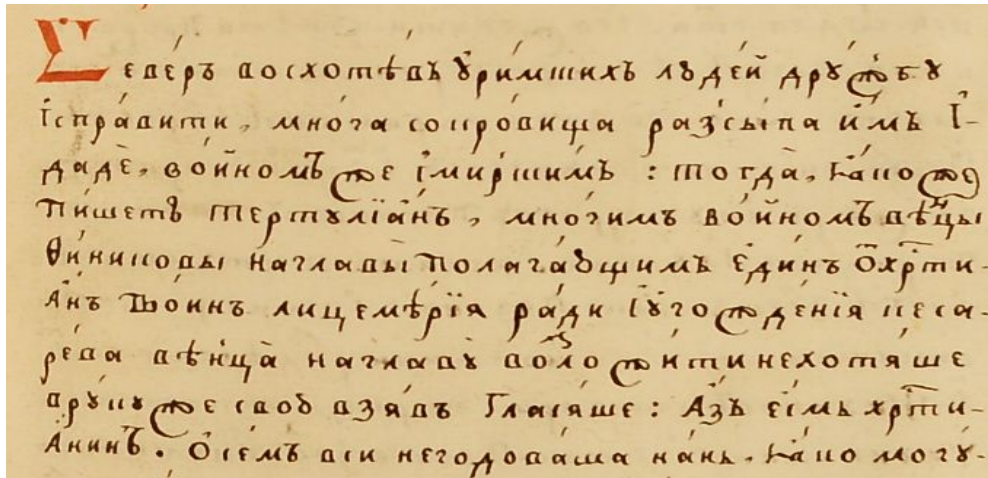 Северъ восхотѣвъ ѹ҆ри́мскихъ людей дрꙋжбꙋ
І҆спра́вити, мно́га сокро́вища разсы́па и҆́мъ І҆-
дадѐ, во́йномъ же с̾ми́рнымъ : тогда̀, ꙗ҆́коже
пи́шетъ тертꙋлїа́нъ, мно́гимъ во́йномъ вѣнцы̀
Ѳи́никовы наглавы̀ полага́ющимъ є҆ди́нъ Ѿ хр҇ти-
а́нъ во́инъ лицемѣ́рїѧ ра́ди і҆ѹгожде́нїѧ кеса-
рева вѣнца̀ наглавꙋ̀ возложи́ти нехотѧ́ше
врꙋ́кꙋ же свою̀ взѧ́въ гласѧ́ше : А҆́зъ є҆́смь хр҇ти-
а́нинъ. Ѻ҆ се́мъ вси́ негодова́ша на́нь, ꙗ҆́ко могꙋ́-